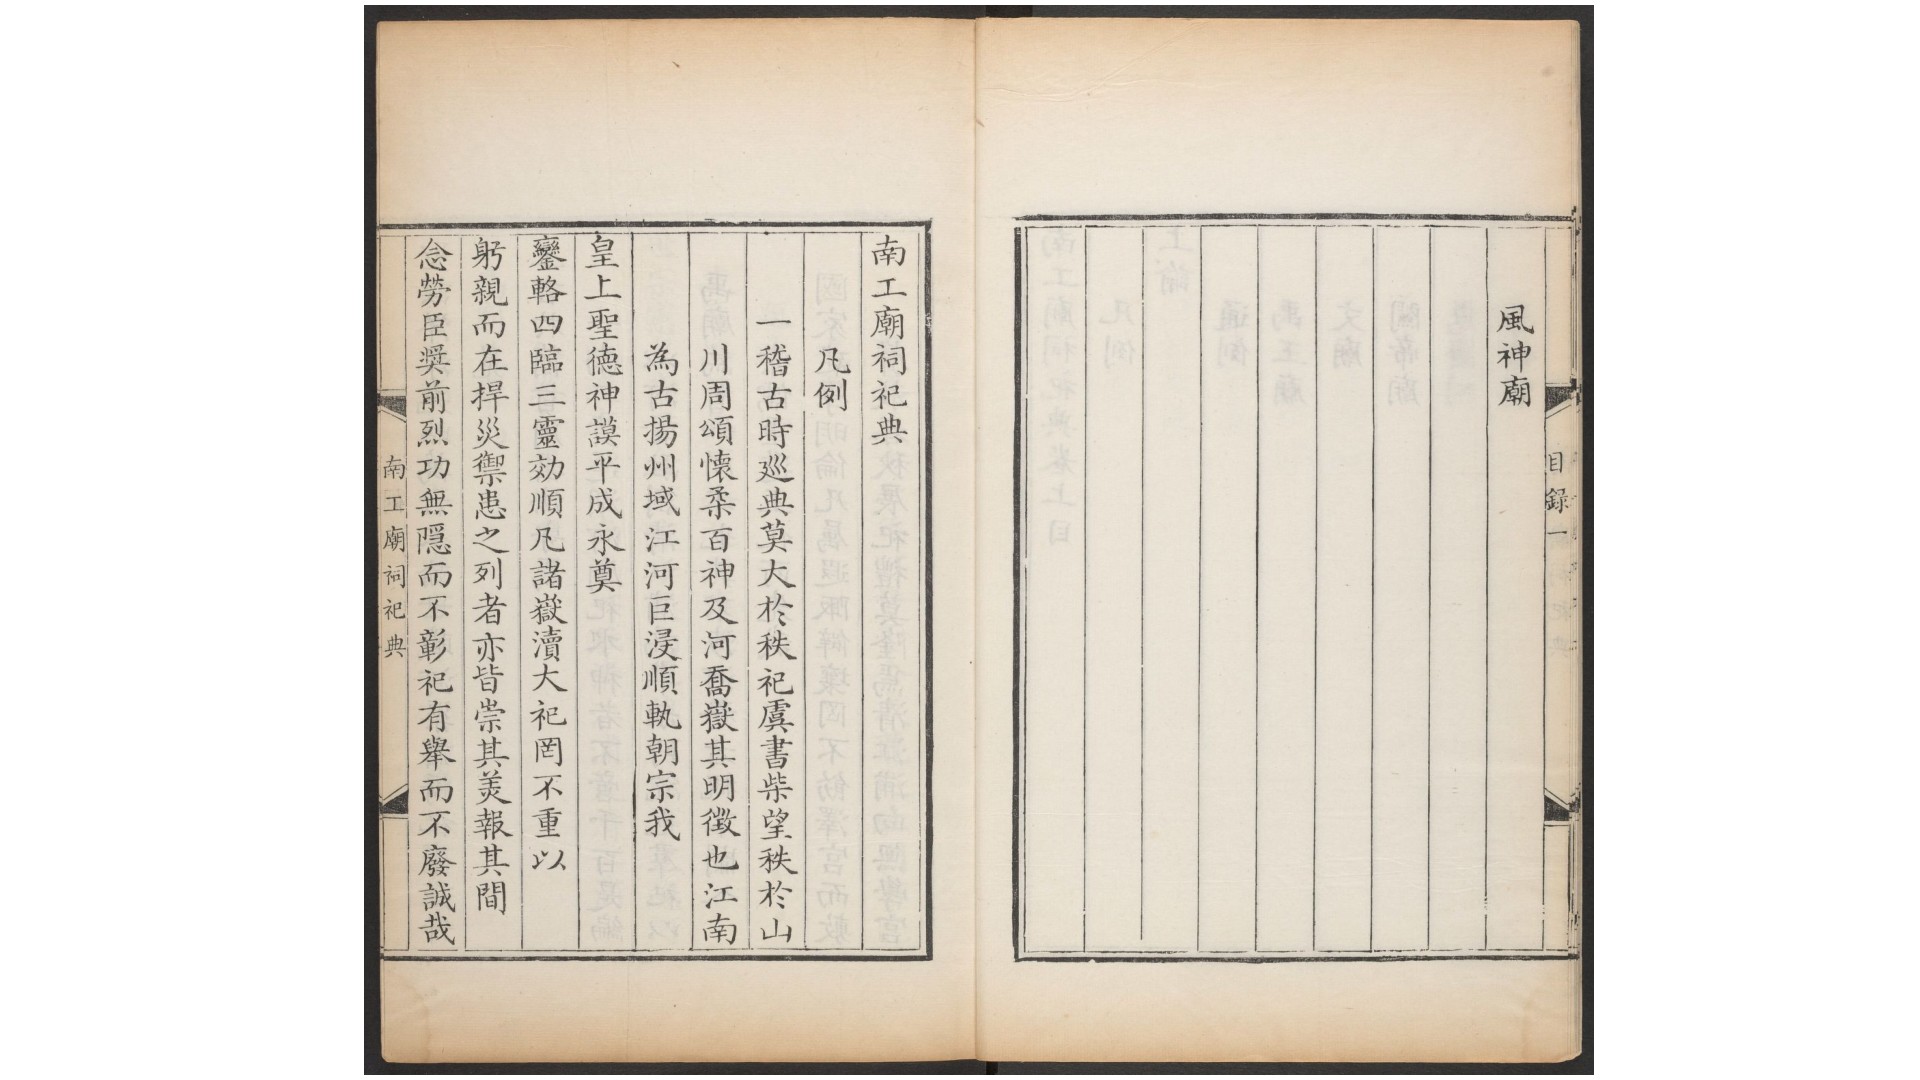 風神廟
目録一
南工廟祠祀典
凡例
一稽古時巡典莫大於秩祀虞書柴望秩於山
川周頌懷柔百神及河喬嶽其明徵也江南
為古揚州域江河巨浸順軌朝宗我
皇上聖德神謨平成永奠
鑾輅四臨三靈効順凡諸嶽瀆大祀罔不重以
躬親而在捍災禦患之列者亦皆崇其美報其間
念勞臣奬前烈功無隱而不彰祀有舉而不廢誠哉
南工廟祠祀典